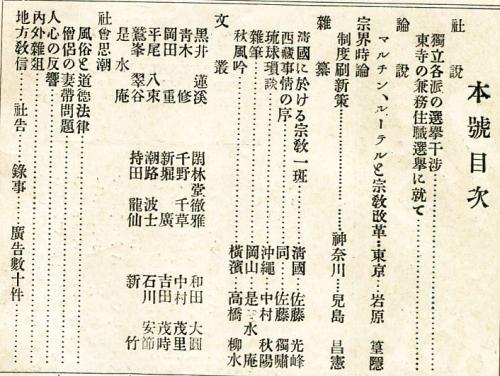 本號目次
社說
獨立各派の選擧干涉
東寺の兼務住職選擧に就て
論說
マルチン、ルーテルと宗敎改革…東京 岩原 篁隱
宗界時論
制度刷新策………神奈川 兒島 昌憲
雜纂
淸國に於ける宗敎一班………淸國 佐藤 光峰
西藏事情の序………同 佐藤 獨嘯
琉球瑣談………沖繩 中村 秋陽
雜筆………岡山 是水庵
秋風吟………橫濱 高橋 柳水
文叢
黑井 蓮溪 閑林堂徹雅 和田 大圓
靑木 修 千野 千草 中村 茂里
岡田 重 新堀 廣 吉田 茂時
平尾 八束 潮路 波士 石川 安節
鷲峯 翠谷 持田 龍仙 新 竹
是水庵
社會思潮
風俗と道德法律
僧侶の妻帶問題
人心の反響
內外雜俎
地方敎信 社告 錄事 廣告數十件